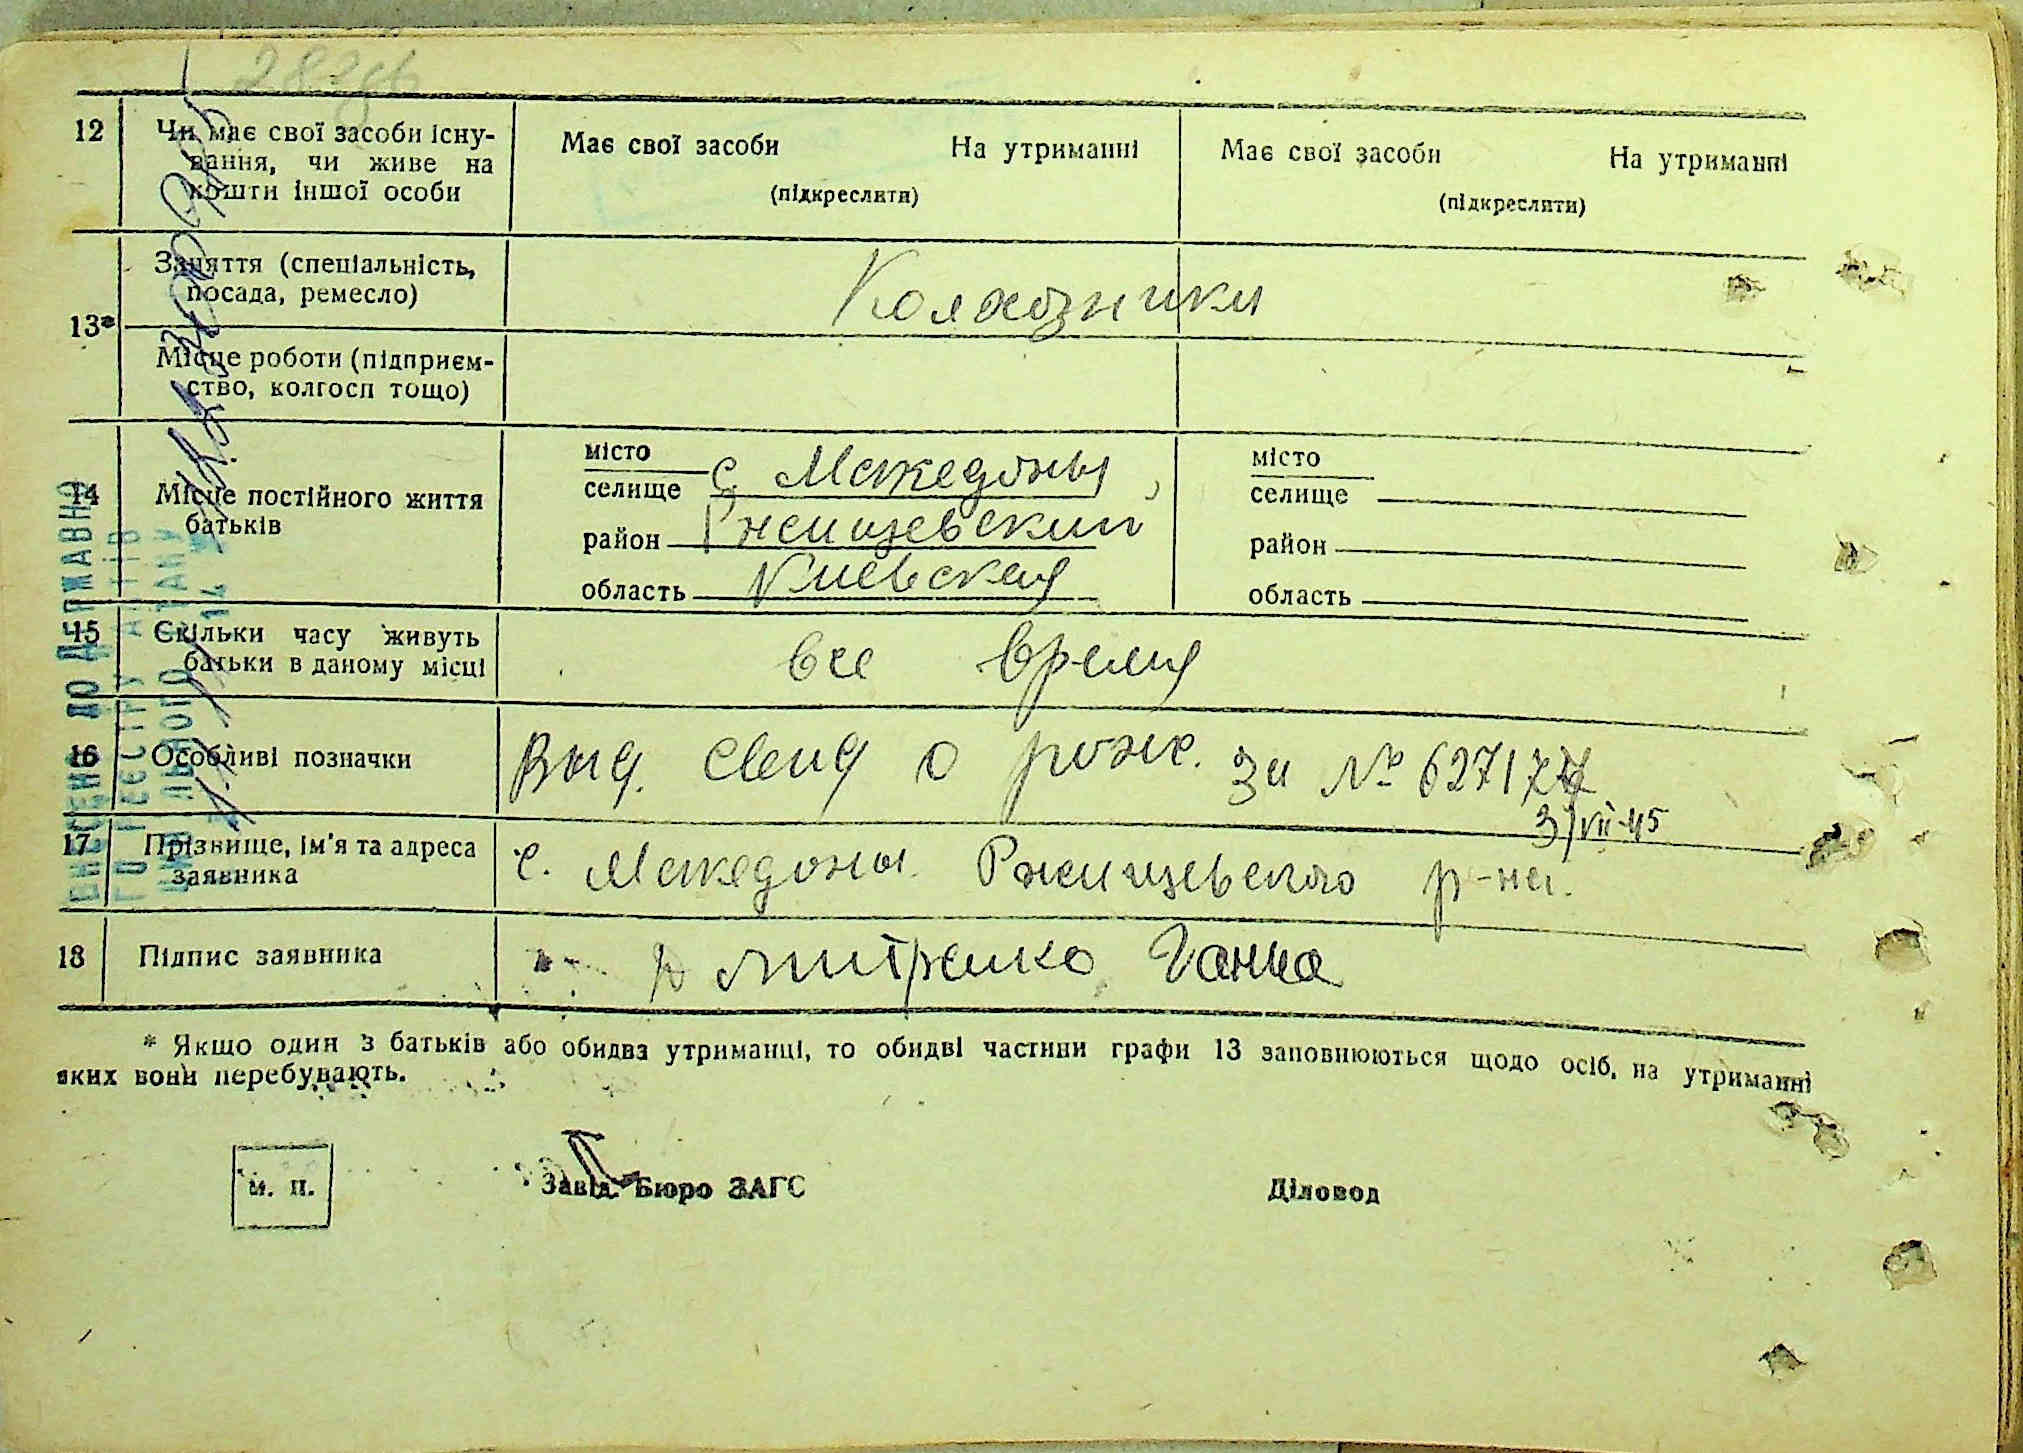 12 Чи має свої засоби існу-
вання, чи живе на
кошти іншої особи
Має свої засоби На утриманні
(підкреслити)
Має свої засоби На утриманні
(підкреслити)
13*
Заняття (спеціальність,
посада, ремесло)
Колхозники
Місце роботи (підприєм-
ство, колгосп тощо)
14 Місце постійного життя
батьків
місто
селище с. Македоны,
район Ржищевский
область Киевская
місто
селище
район
область
15 Скільки часу живуть
батьки в даному місці
все время
16 Особливі позначки
Выд. свид о рожд. за №
3/VII-45
17 Прізвище, ім'я та адреса
заявника
с. Македоны Ржищевского р-на.
18 Підпис заявника
Дмитренко Ганна
* Якщо один з батьків або обидва утриманці, то обидві частини графи 13 заповнюються щодо осіб, на утриманні
яких вони перебувають.
м. п.
Завід. Бюро ЗАГС
Діловод
ВНЕСЕНО ДО ДЕРЖАВНО
ГО РЕЄСТРУ АКТІВ